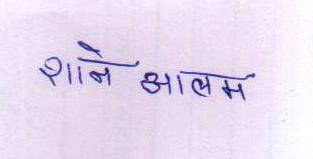 शाने आलम